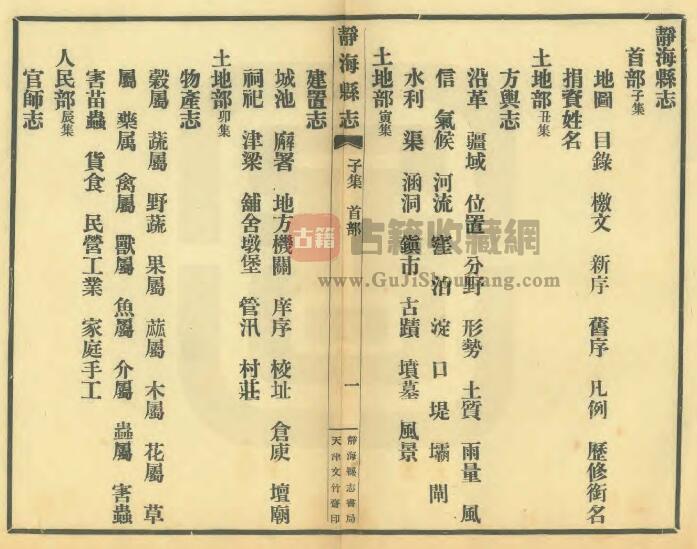 靜海縣志
首部子集
地圖 目錄 檄文 新序 舊序 凡例 歷修銜名
捐資姓名
土地部丑集
方輿志
沿革 疆域 位置 分野 形勢 土質 雨量 風
信 氣候 河流 窪 泊 淀 口 堤 壩 閘
水利 渠 涵洞 鎭市 古蹟 墳墓 風景
土地部寅集
靜海縣志 子集 首部 一
靜海縣志書局
天津文竹齋印
建置志
城池 廨署 地方機關 庠序 校址 倉庾 壇廟
祠祀 津梁 舖舍墩堡 管汛 村莊
土地部卯集
物產志
穀屬 蔬屬 野蔬 果屬 蓏屬 木屬 花屬 草
屬 藥属 禽屬 獸屬 魚屬 介屬 蟲屬 害蟲
害苗蟲 貨食 民營工業 家庭手工
人民部辰集
官師志
古籍 古籍收藏網
www.GuJiShouCang.com